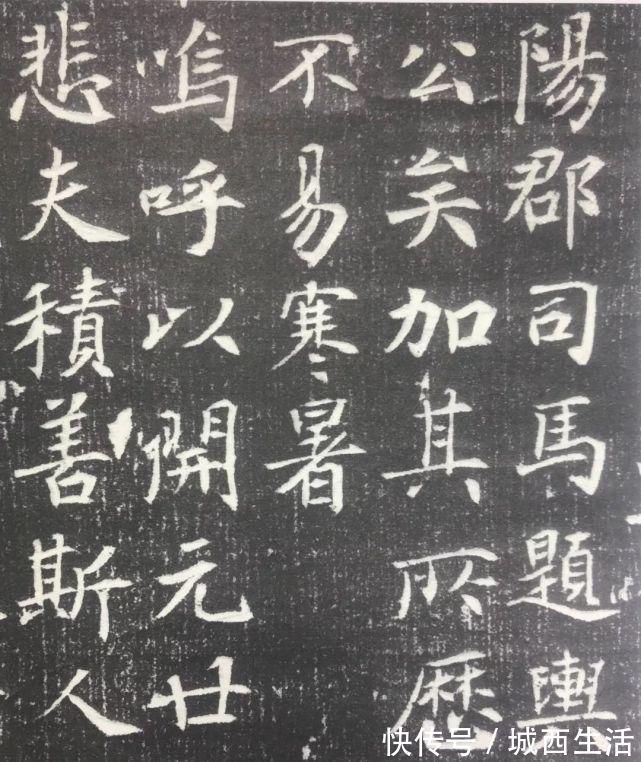 陽郡司馬題輿
公矣加其所歷
不易寒暑
嗚呼以開元廿
悲夫積善斯人
快传号/城西生活